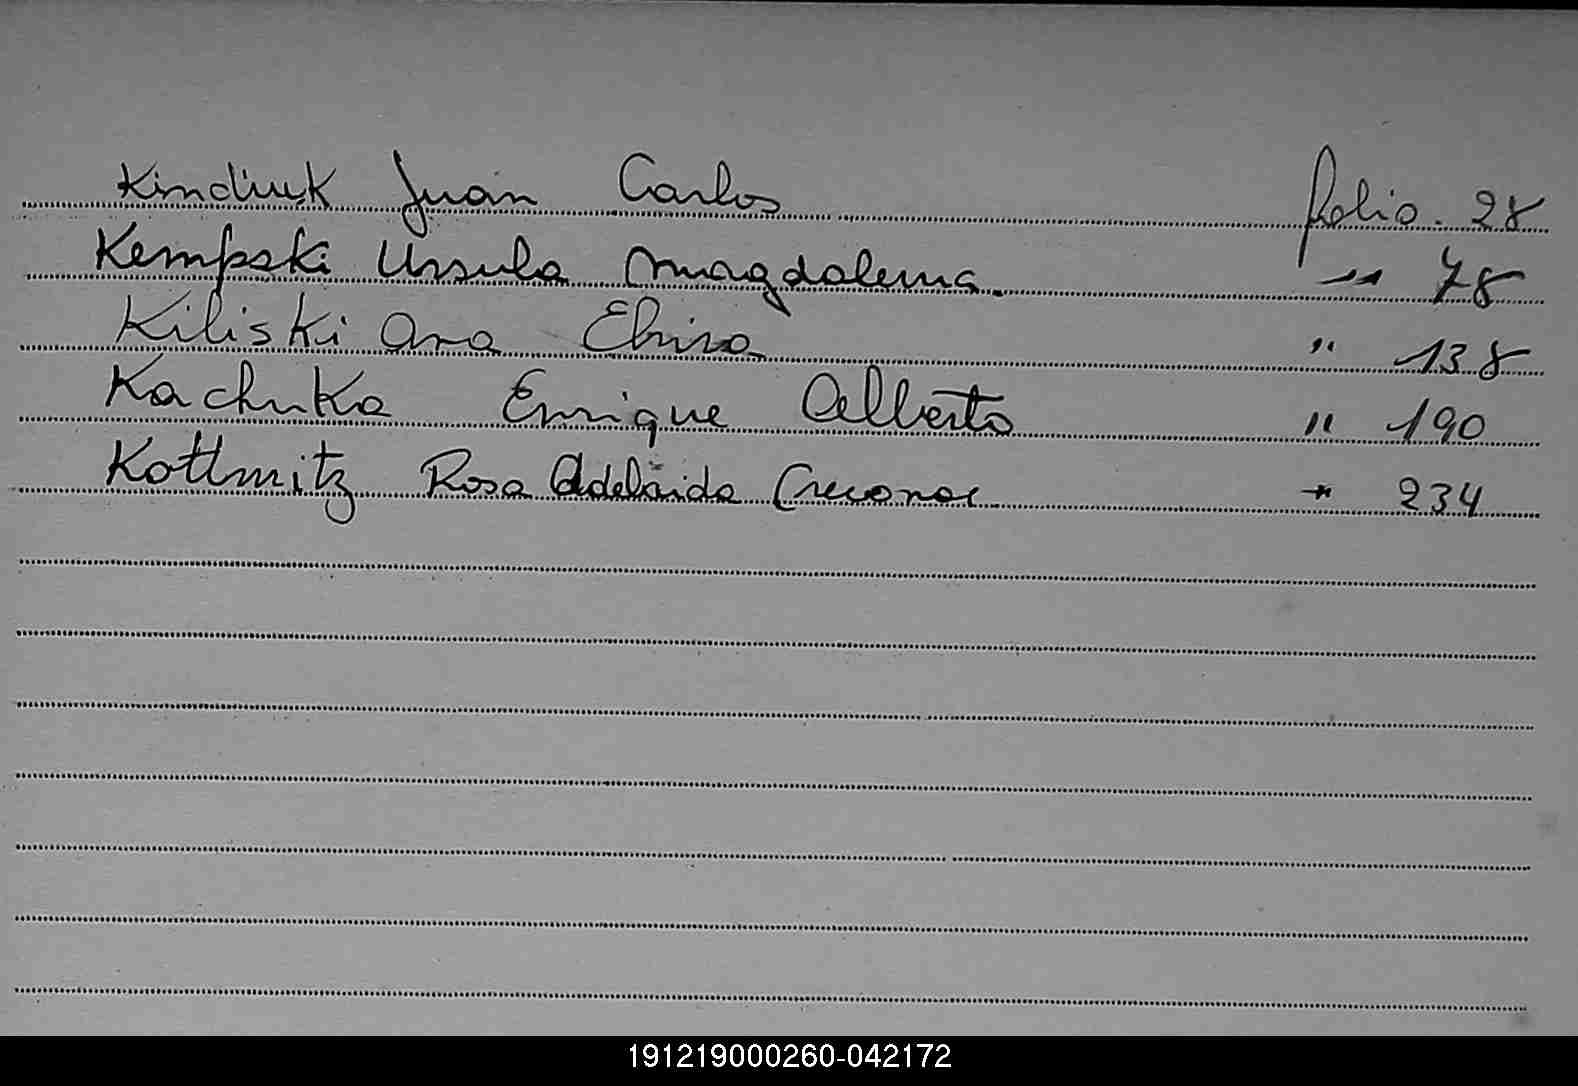 Kindiuk Juan Carlos folio. 28
Kempski Ursula Magdalena. " 78
Kiliski Ana Elvira " 138
Kachuka Enrique Alberto " 190
Kottmitz Rosa Adelaida " 234
191219000260-042172